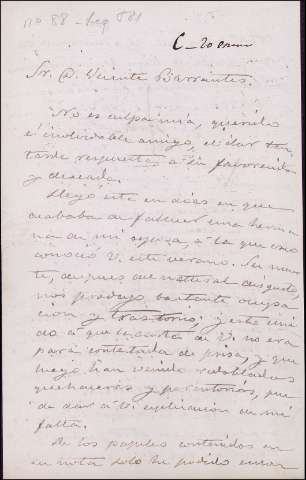 nº 88 - leg 581
C - 20 enero
Sr. D. Vicente Barrantes.
No es culpa mia, querido
é inolvidable amigo, el dar tan
tarde respuesta á su favorecida
y deseada.
Llegó esta en dias en que
acababa de fallecer una herma
na de mi esposa, á la que creo
conoció V. este verano. Su muer
te, despues del natural disgusto
nos produjo bastante ocupa
cion y trastorno; y esto uni
do á que la carta de V. no era
para contestada de prisa, y que
luego han venido redoblados
quehaceres y perentorios, pue
de dar á V. esplicacion de mi
falta.
De los papeles contenidos en
su nota solo he podido encon